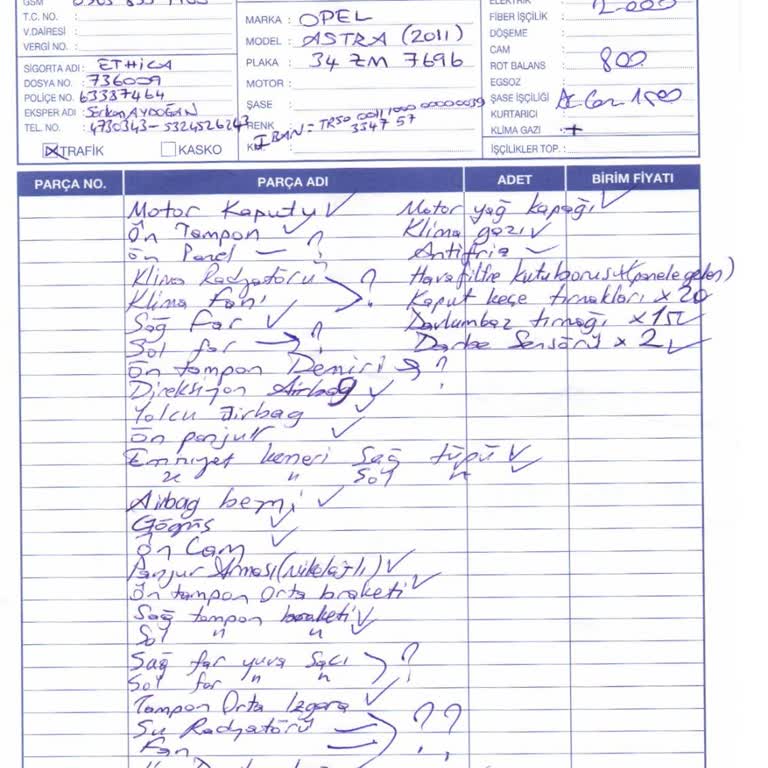 GSM
T.C. NO. :
V.DAİRESİ :
VERGİ NO. :
SİGORTA ADI : ETHICA
DOSYA NO. : 736009
POLİÇE NO. 63387464
EKSPER ADI : Serkan AYDOĞAN
TEL. NO. : 4730343-5324526243
☒ TRAFİK ☐ KASKO
MARKA : OPEL
MODEL : ASTRA (2011)
PLAKA : 34 ZM 7696
MOTOR :
ŞASE :
RENK
IBAN = TR50
3347 57
ELEKTRİK
FİBER İŞÇİLİK :
DÖŞEME :
CAM :
ROT BALANS : 800
EGSOZ :
ŞASE İŞÇİLİĞİ
KURTARICI :
KLİMA GAZI : +
İŞÇİLİKLER TOP. :
PARÇA NO. PARÇA ADI ADET BİRİM FİYATI
Motor Kaputu ✓ Motor yağ kapağı ✓
Ön Tampon ✓ Klima gazı ✓
Ön Panel — ? Antifriz ✓
Klima Radyatörü ? Havafiltre kutu borusu (panele gelen)
Klima fanı Kaput keçe tırnakları x 20
Sağ Far ✓ Davlumbaz tırnağı x 15 ✓
Sol far → ? Darbe Sensörü x 2 ✓
Ön tampon Demiri ?
Direksiyon Airbag ✓
Yolcu Airbag ✓
Ön panjur ✓
Emniyet kemeri Sağ tüpü ✓
" " Sol " ✓
Airbag beyni ✓
Göğüs ✓
Ön Cam ✓
Panjur Arması (Nikelajlı) ✓
Ön tampon Orta braketi ✓
Sağ tampon braketi ✓
Sol " " ✓
Sağ far yuva Sacı ?
Sol far " "
Tampon Orta Izgara ✓
Su Radyatörü ??
Fan